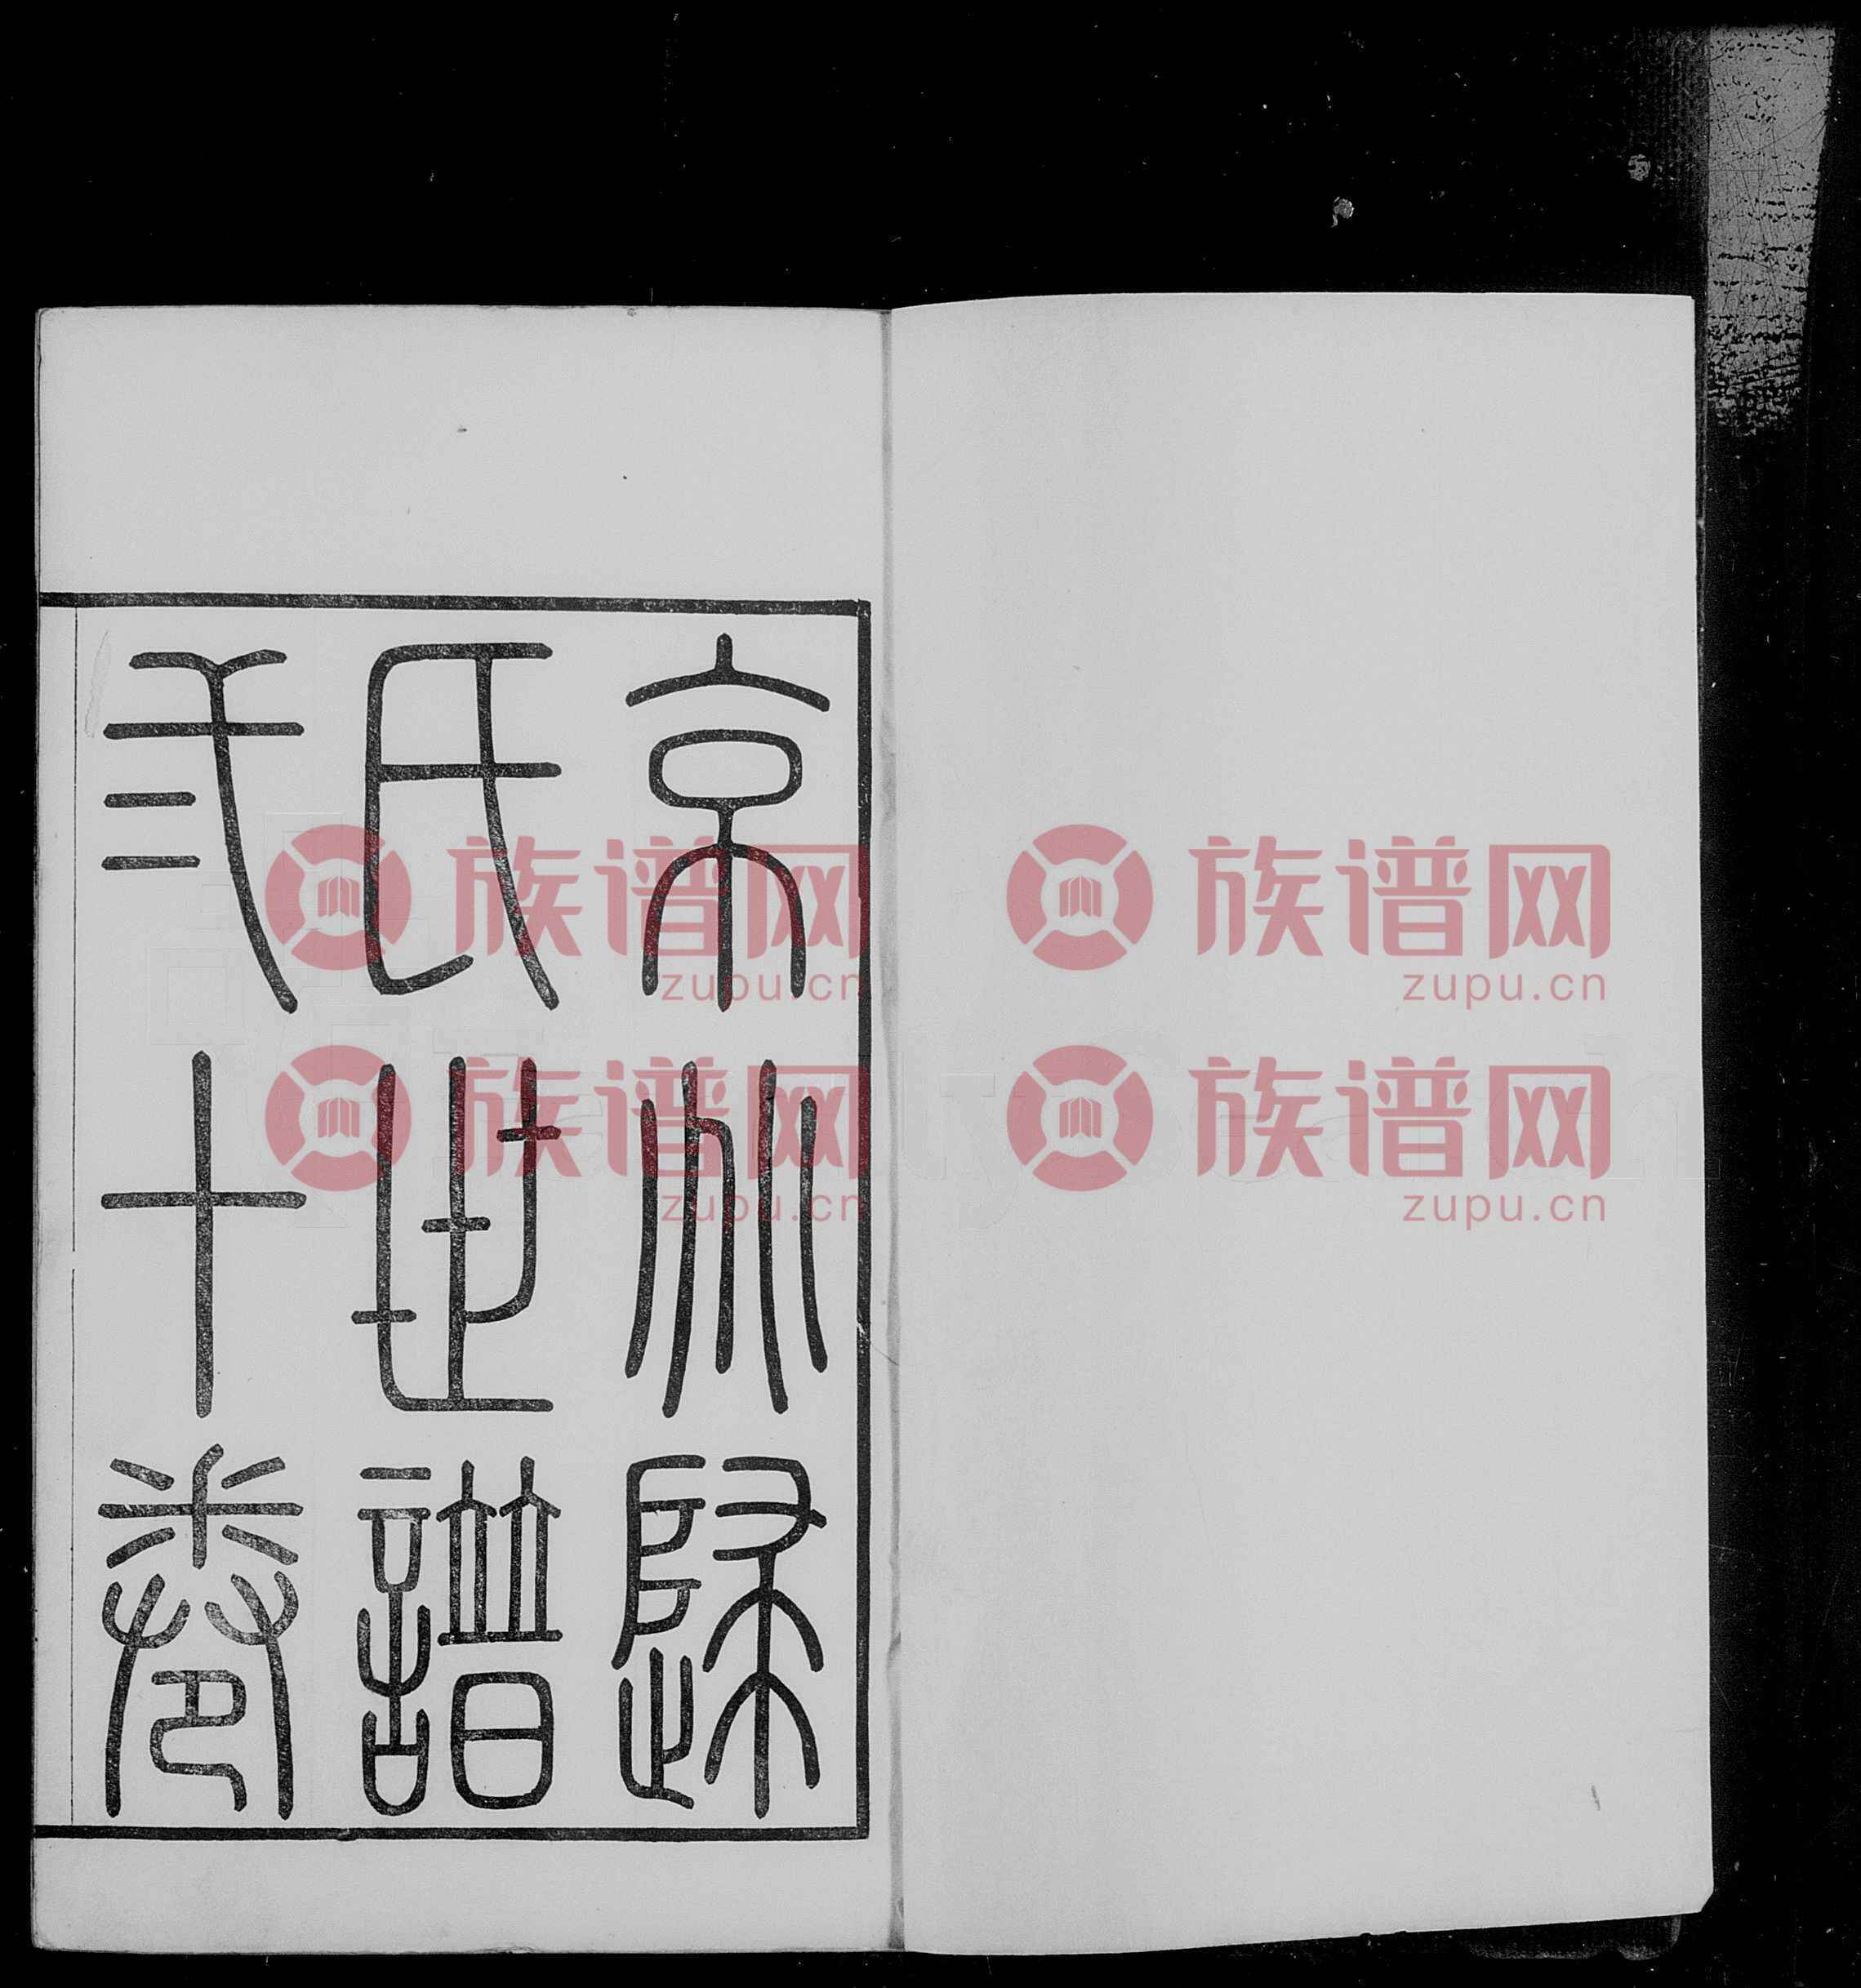 京兆歸
氏世譜
弍十卷
族谱网
zupu.cn
族谱网
zupu.cn
族谱网
zupu.cn
族谱网
zupu.cn